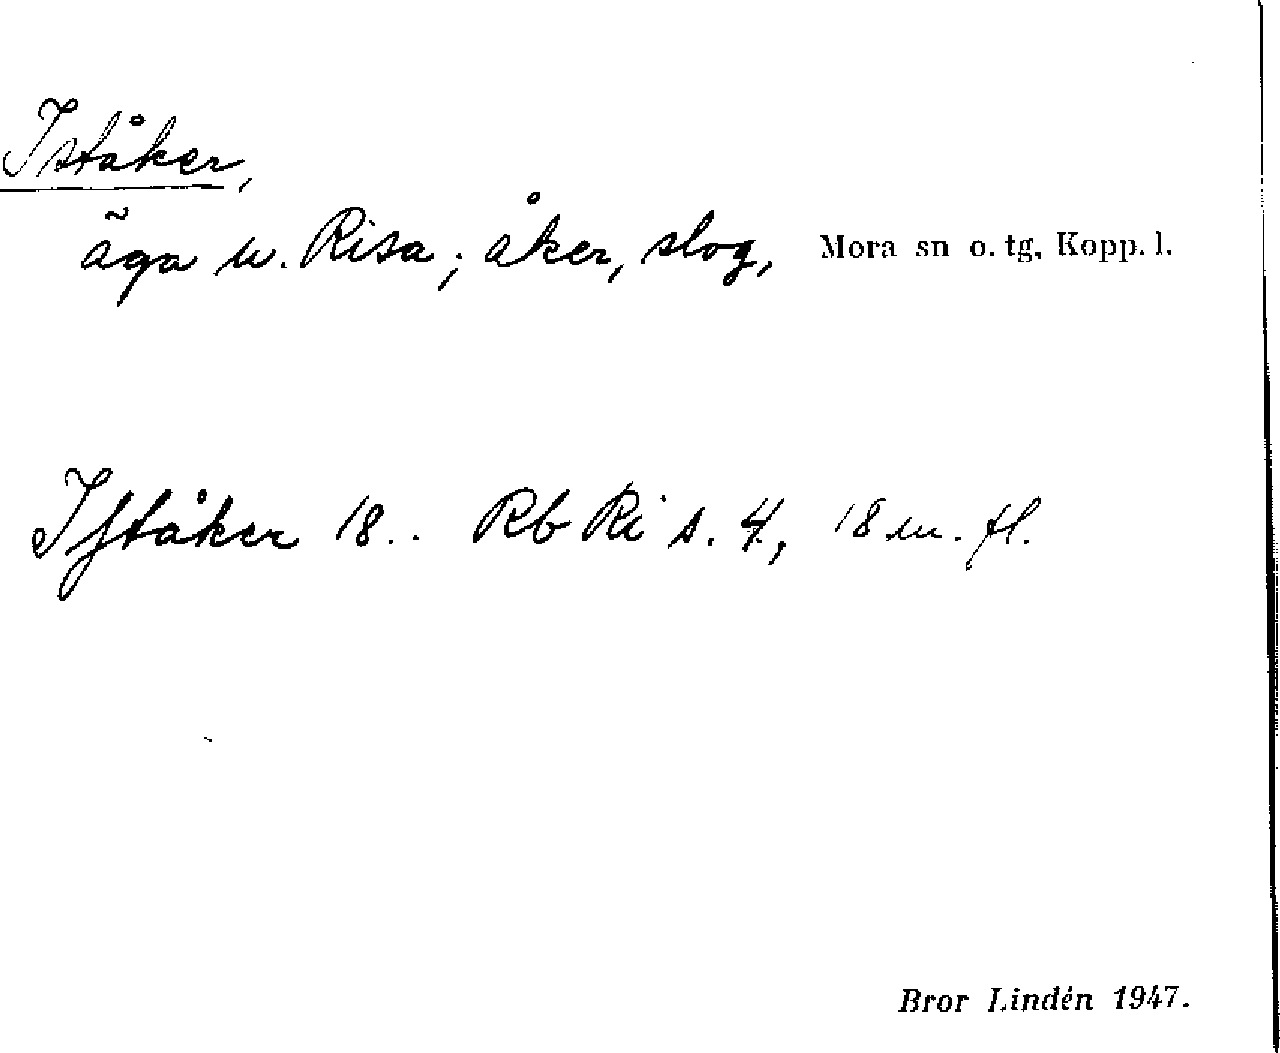 Iståker,
äga u. Risa; åker, slog, Mora sn o. tg, Kopp. l.
Iſtåker 18.. Rb Ri s. 4, 18 m. fl.
Bror Lindén 1947.